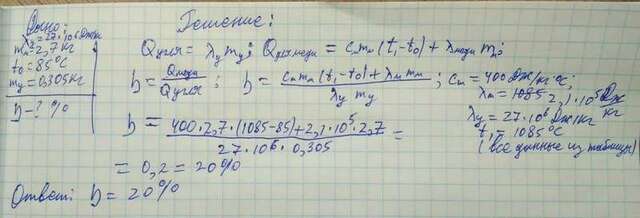 Дано:
λу = 27·10⁶ Дж/кг
mм = 2,7 кг
t₀ = 85°C
mу = 0,305 кг
η = ? %
Решение:
Qугля = λу mу; Qплмеди = cм mм (t₁-t₀) + λмеди m;
η = Qмеди / Qугля; η = cм mм (t₁-t₀) + λм mм / λу mу; cм = 400 Дж/кг°C
λм = 2,1·10⁵ Дж/кг
λу = 27·10⁶ Дж/кг
t₁ = 1085°C
(все данные из таблицы)
η = 400·2,7·(1085-85) + 2,1·10⁵·2,7 / 27·10⁶·0,305 =
= 0,2 = 20%
Ответ: η = 20%